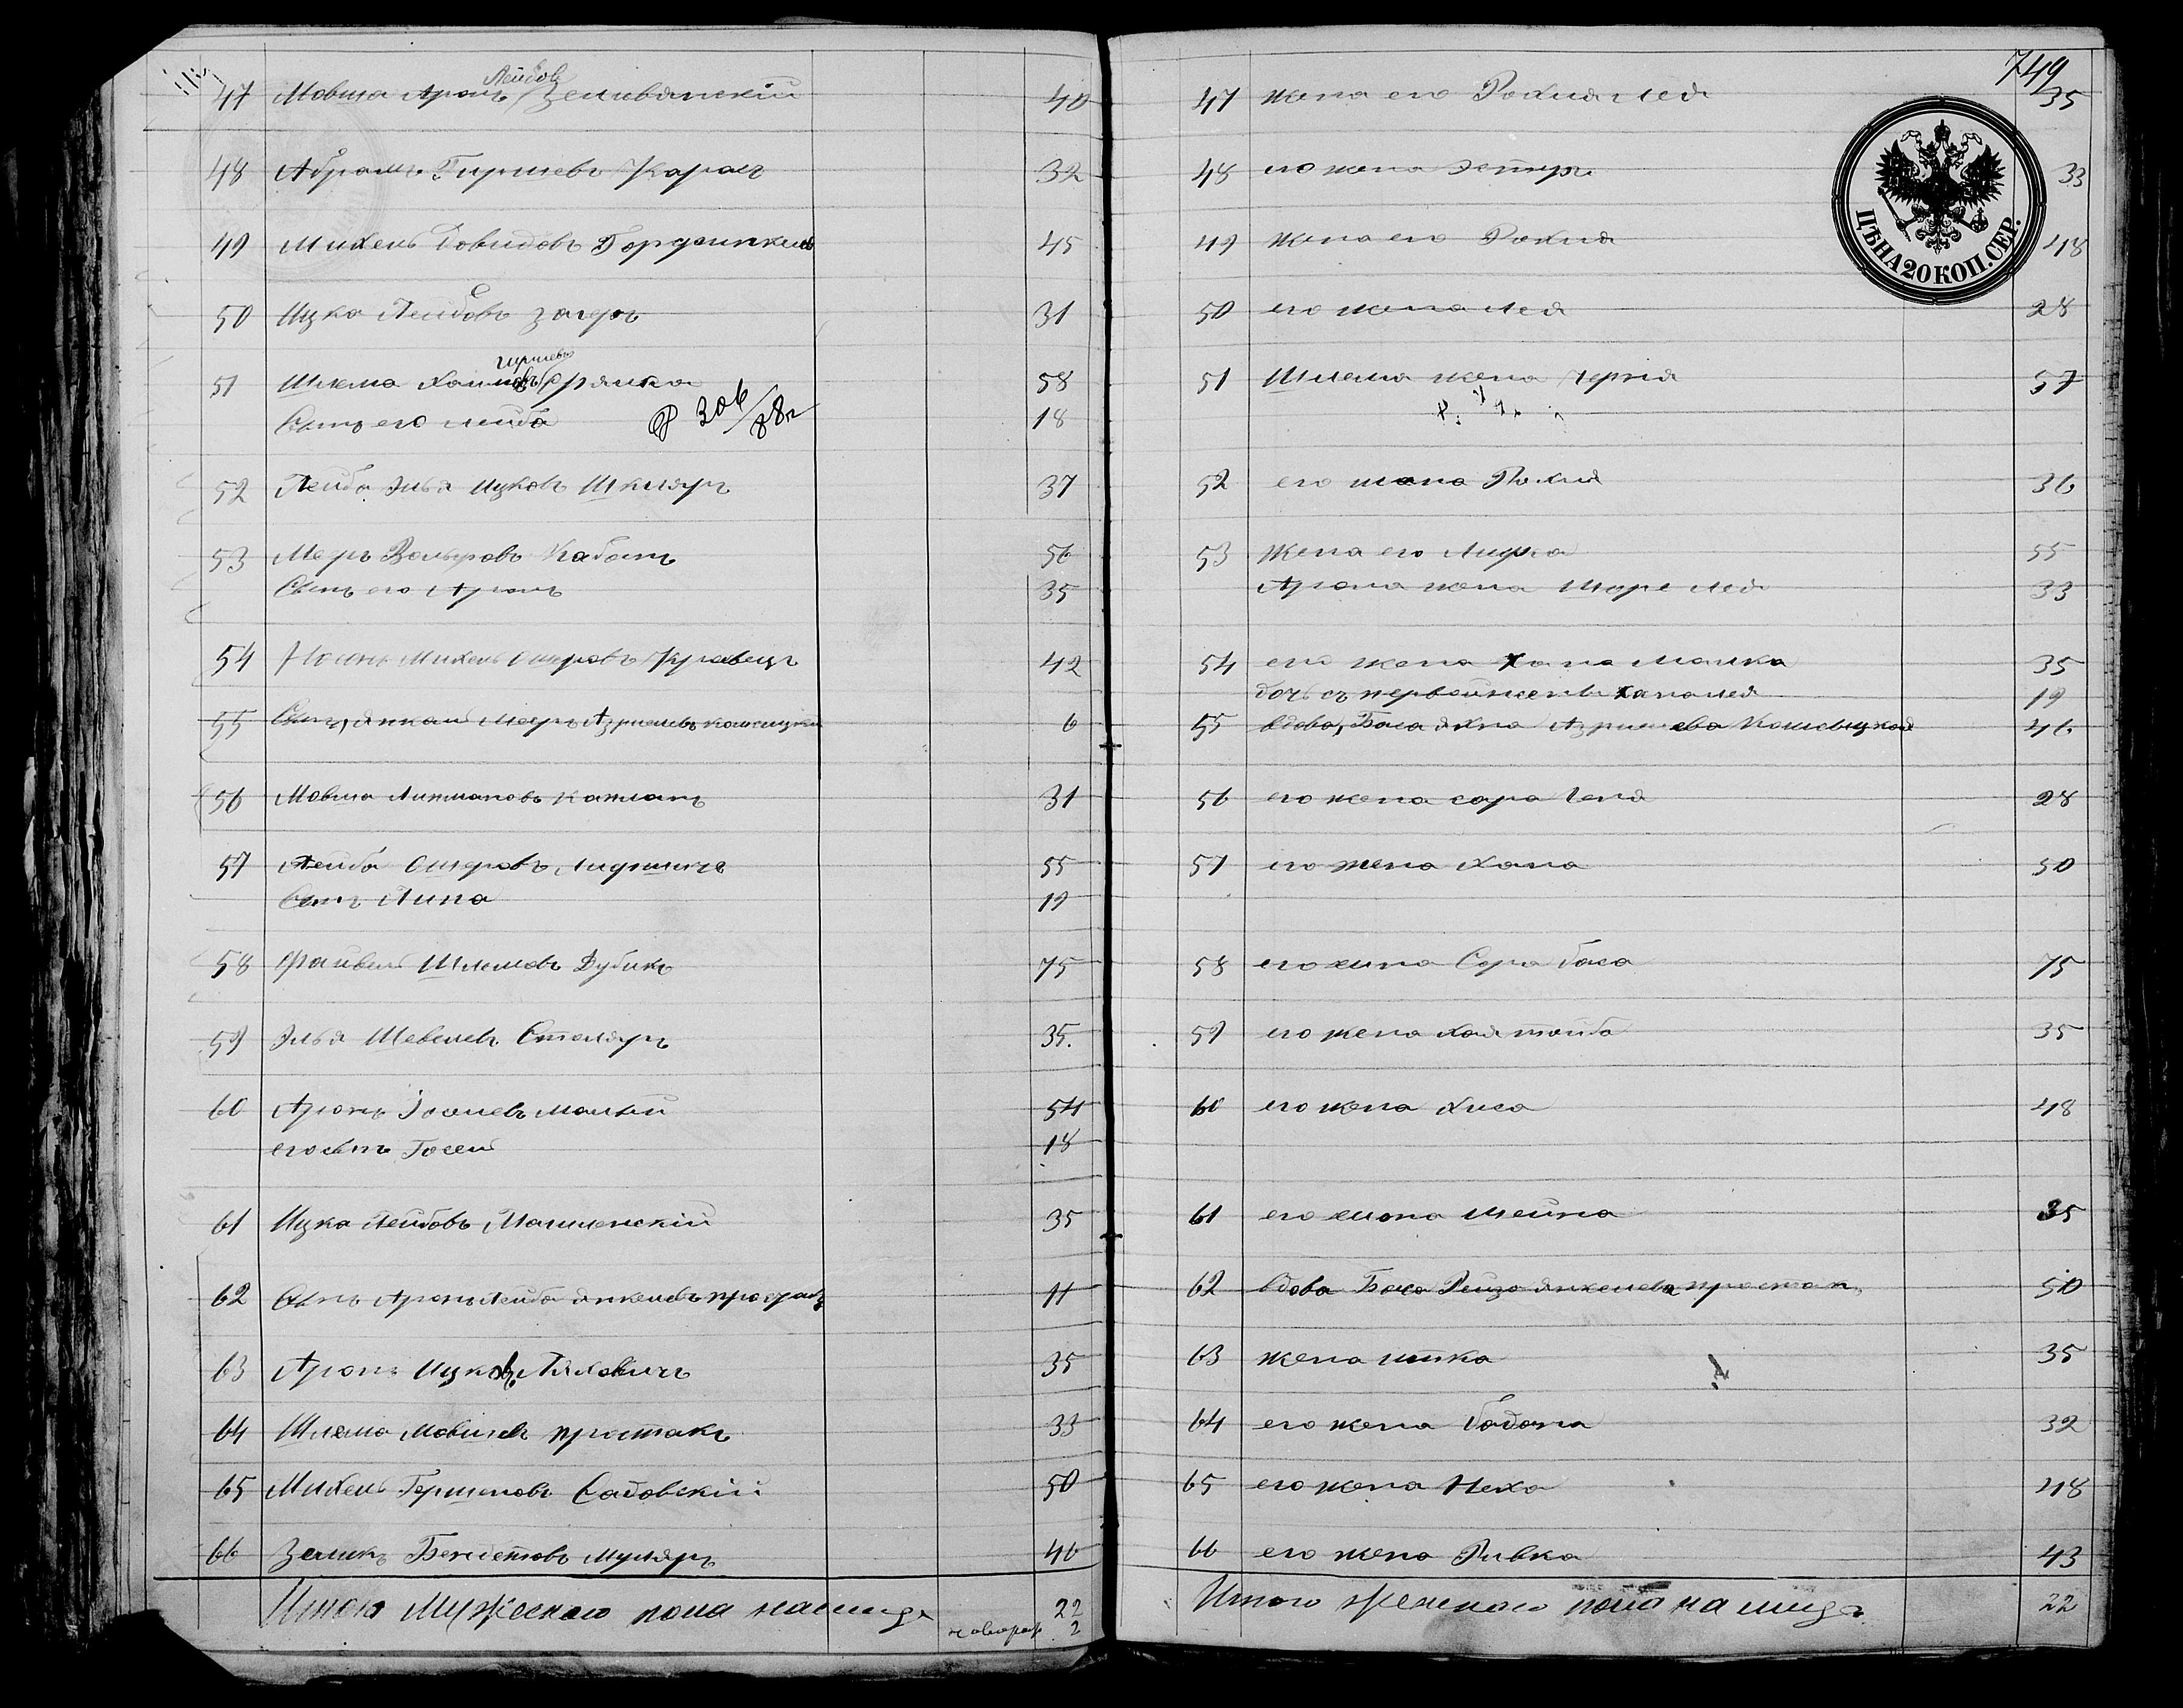 47 Мовша Аронъ Лейбов Зельвянскій 40
48 Абрамъ Гиршевъ Карась 32
49 Михель Довидовъ 45
50 Ицка Лейбовъ Загеръ 31
51 Шлема Хаимовъ гиршевъ 58
Сынъ его лейба 306/88 г 18
52 Лейба Элья Ицковъ Шкляръ 37
53 Меръ Вольфовъ Кабакъ 56
Сынъ его Аронъ 35
54 Михель Ошеровъ Кравецъ 42
55 Сынъ, Янкель Мееръ Азриелевъ 6
56 Мовша Липмановъ Капланъ 31
57 Лейба Ошеровъ 55
Сынъ Липа 19
58 Файвель Шлемовъ Дубикъ 75
59 Элья Шевелевъ Столяръ 35.
60 Аронъ Іоселевъ 54
его сынъ Іосель 18
61 Ицка Лейбовъ 35
62 Сынъ Аронъ Лейба Янкелевъ простакъ 11
63 Аронъ Ицковъ Ляховичъ 35
64 Шлема Мовшевъ простакъ 33
65 Михель Гершеновъ Садовскій 50
66 Зеликъ Муляръ 46
Итого Мужескаго пола на лицо 22
2
749
47 жена его Рохля лея 35
48 его жена Эстеръ 33
49 жена его Рохля 48
50 его жена Лея 28
51 Шлема жена Черня 57
52 его жена Рохля 36
53 Жена его Лифка 55
Арона жена Шоре лея 33
54 его жена Хана Малка 35
дочь съ первой жены Хана лея 19
55 вдова, Баса Яхна Азриелева 46
56 его жена сара Геня 28
57 его жена Хана 50
58 его жена Сора баса 75
59 его жена Хая тойба 35
60 его жена Хиса 48
61 его жена Шейна 35
62 вдова Баса Рейза Янкелева простакъ 50
63 жена итка 35
64 его жена бодана 32
65 его жена Неха 48
66 его жена Ривка 43
Итого женскаго пола на лицо 22
ЦѢНА 20 КОП. СЕР.